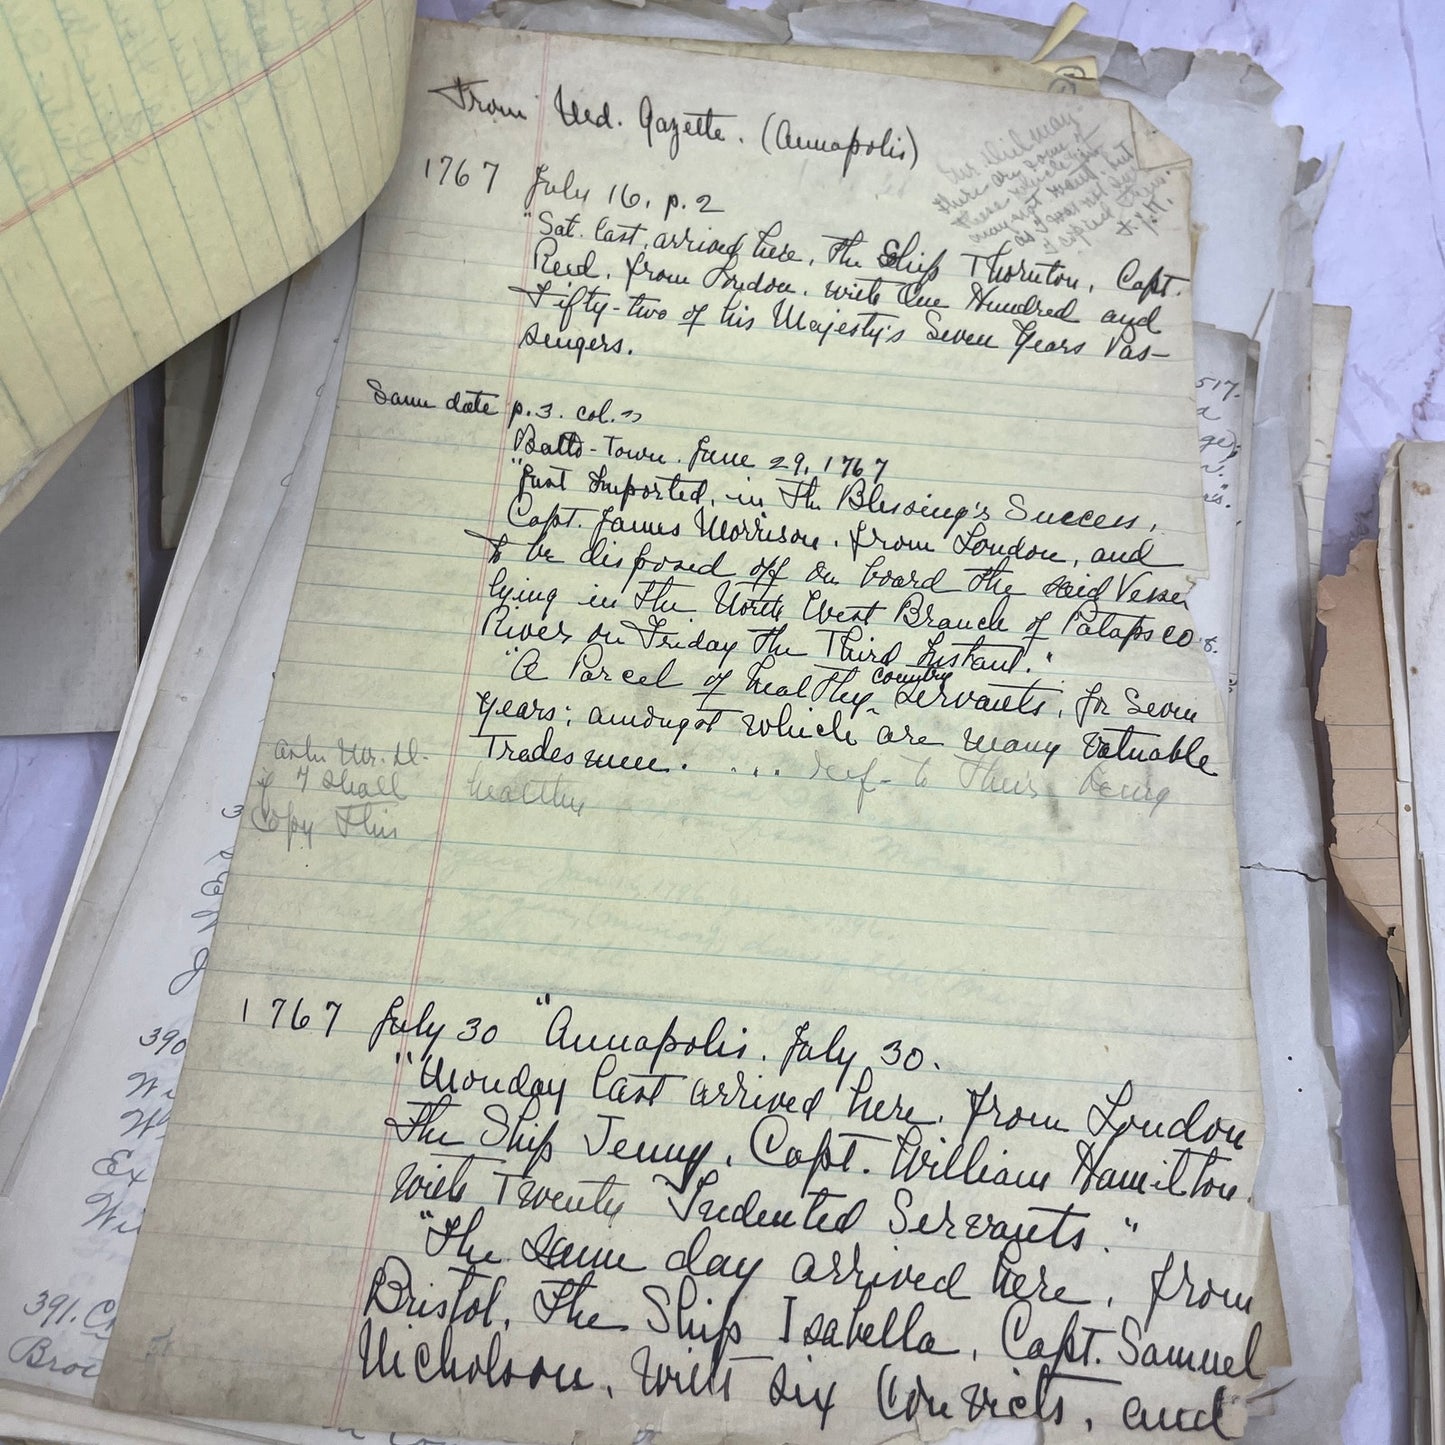 From Md. Gazette. (Annapolis)
Mr. Dielman
there are some of
may not want, but
as I was not sure
I copied them.
1767 July 16. p. 2
"Sat. last, arrived here, the Ship Thornton, Capt.
Reed, from London, with One Hundred and
Fifty-two of his Majesty's Seven Years Pas-
sengers.
Same date p. 3. col. 2
Balto-Town. June 29, 1767
"Just Imported, in the Blessing's Success,
Capt. James Morrison, from London, and
to be disposed off on board the said Vessel
lying in the North West Branch of Patapsco
River on Friday the Third Instant."
"A Parcel of healthy country Servants, for Seven
Years; amongst which are many valuable
Tradesmen. . . . ref- to their being
healthy
ask Mr. D.
if I shall
Copy this
1767 July 30 "Annapolis. July 30.
"Monday last arrived here, from London
the Ship Jenny, Capt. William Hamilton
with Twenty Indented Servants."
"The same day arrived here, from
Bristol, the Ship Isabella, Capt. Samuel
Nicholson, with six Convicts, and
517.
390
Wi
Ex
Wi
391.
Broo